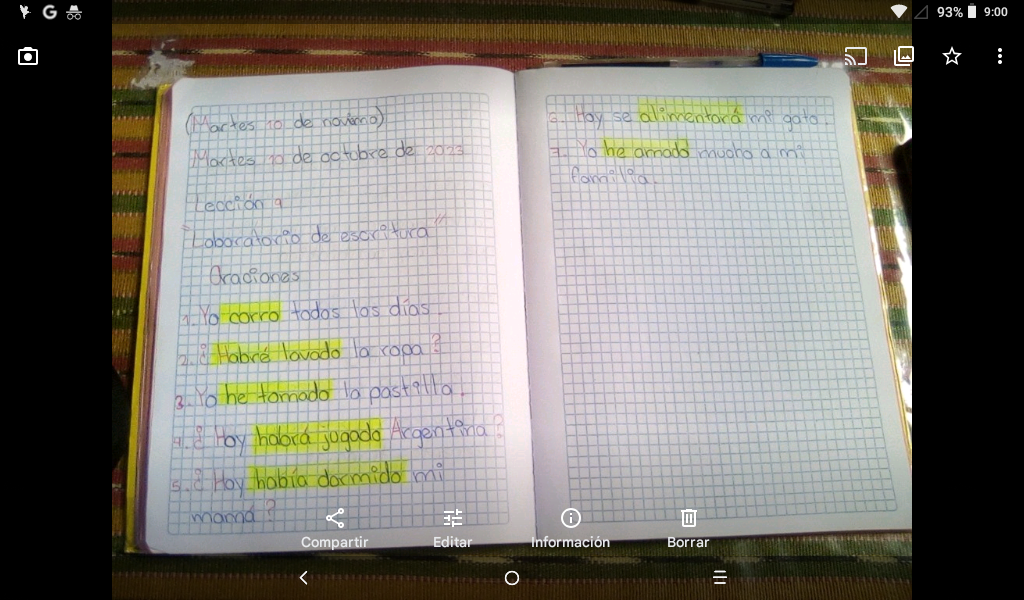 93% 9:00
(Martes 10 de noviemo)
Martes 10 de octubre de 2023
Lección 9
"Laboratorio de escritura"
Oraciones
1. Yo corro todos los días.
2. ¿Habré lavado la ropa?
3. Yo he tomado la pastilla.
4. ¿Hoy habrá jugado Argentina?
5. ¿Hoy había dormido mi
mamá?
6. Hoy se alimentará mi gato.
7. Yo he amado mucho a mi
familia.
Compartir Editar Información Borrar